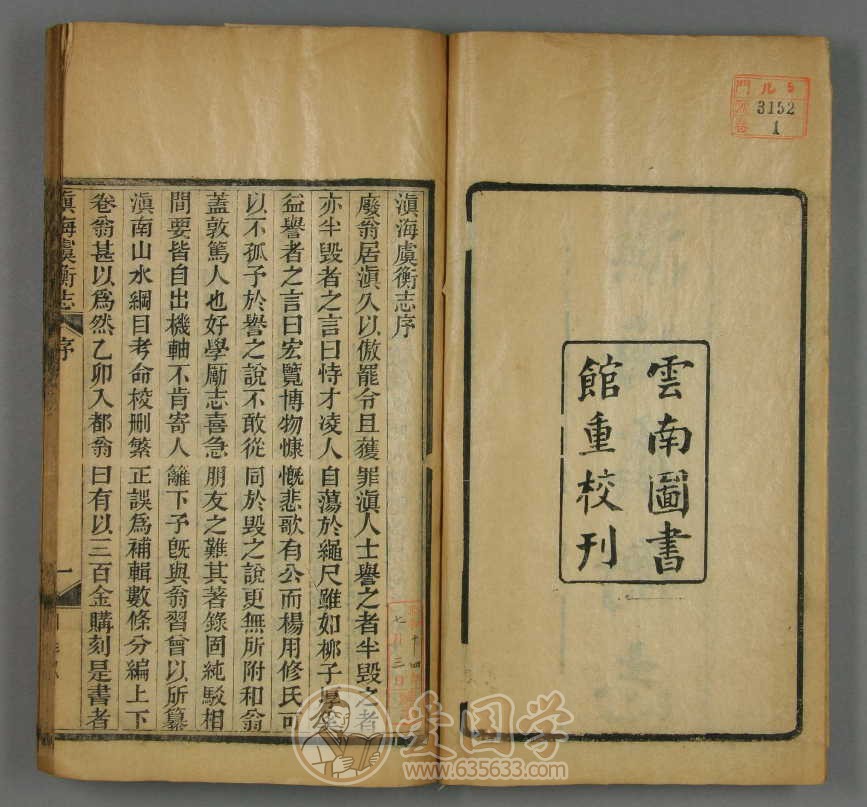 門 ル 5
號 3152
卷 1
雲南圖書
館重校刊
滇海虞衡志序
廢翁居滇久以傲罷令且獲罪滇人士譽之者半毀之者
亦半毀者之言曰恃才凌人自蕩於繩尺雖如柳子厚
益譽者之言曰宏覽博物慷慨悲歌有公而楊用修氏可
以不孤予於譽之說不敢從同於毀之說更無所附和翁
蓋敦篤人也好學勵志喜急朋友之難其著錄固純駁相
間要皆自出機軸不肯寄人籬下予旣與翁習曾以所纂
滇南山水綱目考命校刪繁正誤爲補輯數條分編上下
卷翁甚以爲然乙卯入都翁曰有以三百金購刻是書者
滇海虞衡志 序
一
十四
七月三日
愛国学
www.635633.com